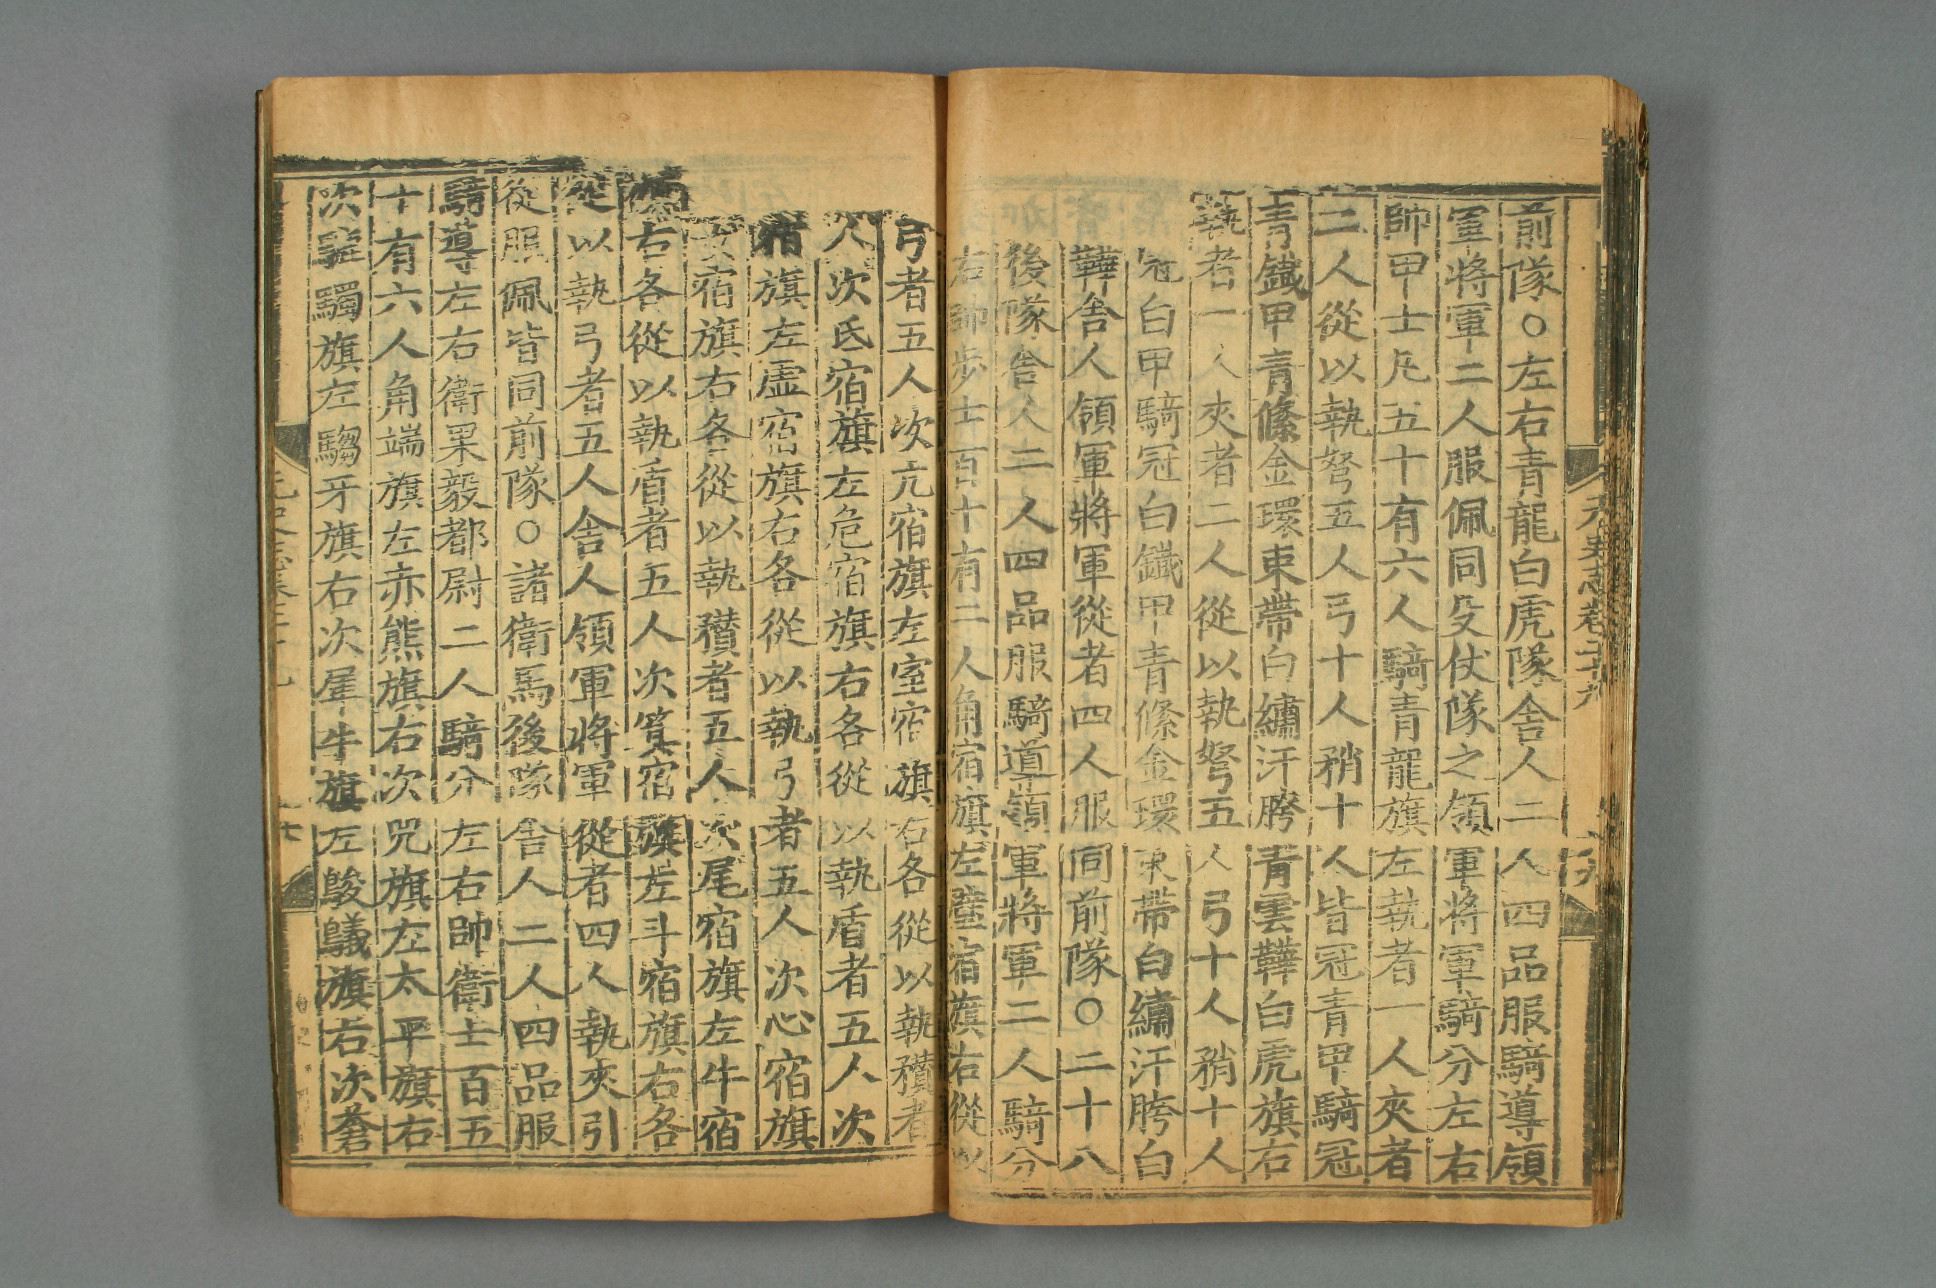 前隊○左右青龍白虎隊舍人二人四品服騎導領
軍將軍二人服佩同殳仗隊之領軍將軍騎分左右
帥甲士凡五十有六人騎青龍旗左執者一人夾者
二人從以執弩五人弓十人矟十人皆冠青甲騎冠
青鐵甲青絛金環束帶白繡汗胯青雲鞾白虎旗右
執者一人夾者二人從以執弩五人弓十人矟十人
冠白甲騎冠白鐵甲青絛金環束帶白繡汗胯白
鞾舍人領軍將軍從者四人服同前隊○二十八
後隊舍人二人四品服騎導領軍將軍二人騎分
左右帥步士百十有二人角宿旗左壁宿旗右從以
弓者五人次亢宿旗左室宿旗右各從以執穳者
人次氐宿旗左危宿旗右各從以執盾者五人次
宿旗左虛宿旗右各從以執弓者五人次心宿旗
女宿旗右各從以執穳者五人次尾宿旗左牛宿
右各從以執盾者五人次箕宿旗左斗宿旗右各
從以執弓者五人舍人領軍將軍從者四人執夾引
從服佩皆同前隊○諸衛馬後隊舍人二人四品服
騎導左右衛果毅都尉二人騎分左右帥衛士百五
十有六人角端旗左赤熊旗右次兕旗左太平旗右
次騼䮷旗左騶牙旗右次犀牛旗左駿䮫旗右次蒼
元史志卷二十九